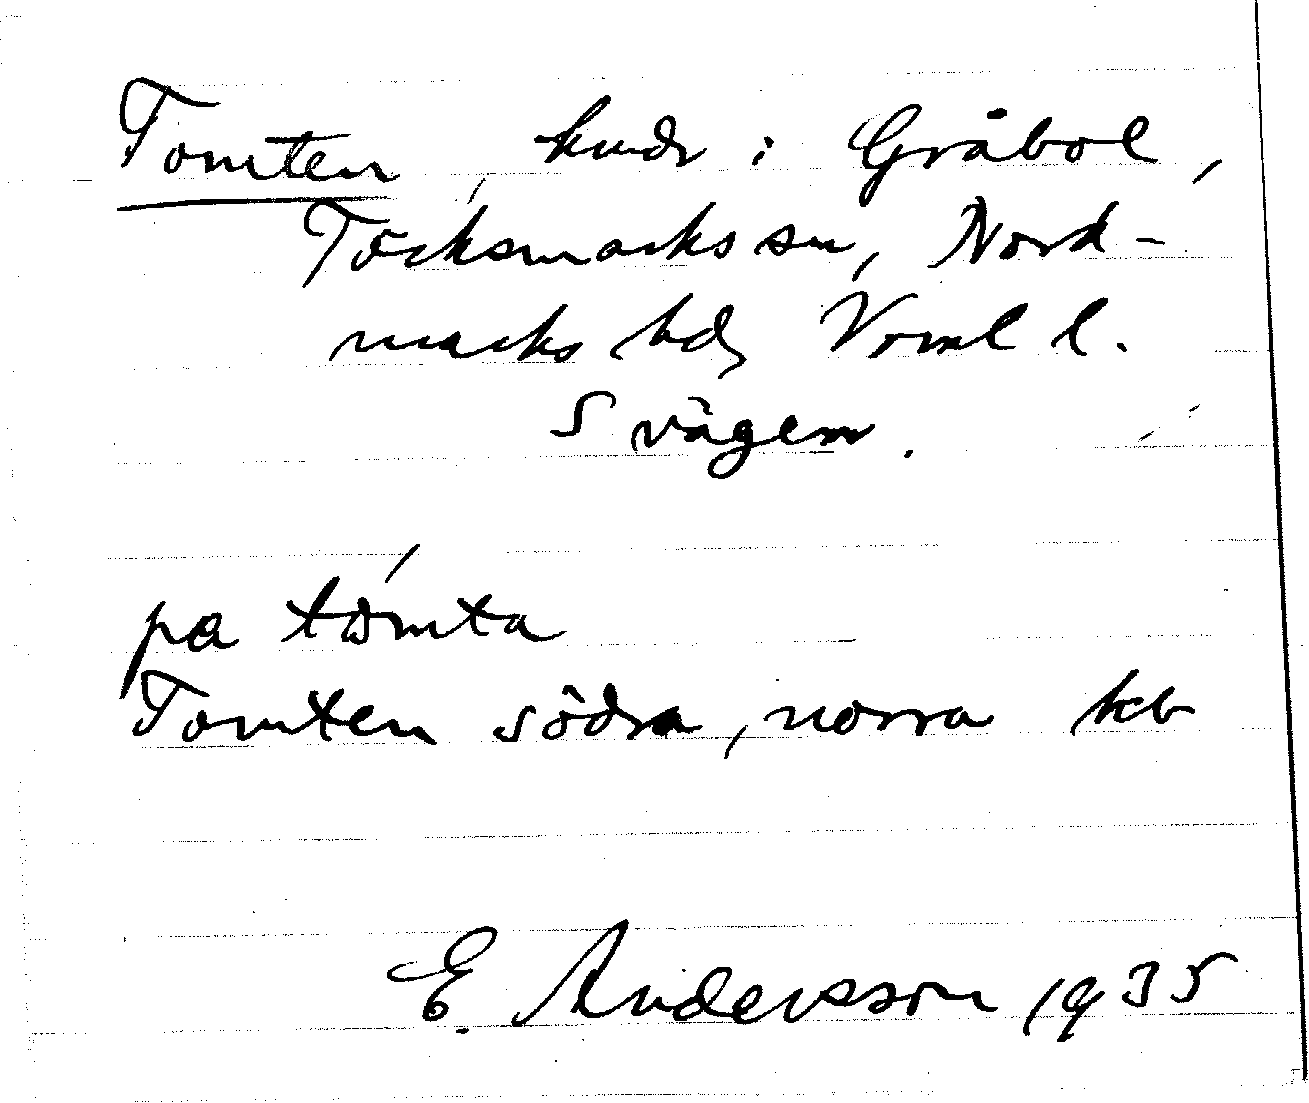 Tomten, hmdr i Gråbol,
Töcksmarks sn, Nord-
marks hd, Vrml l.
S vägen.
på tómta
Tomten södra, norra kb
E. Andersson 1935